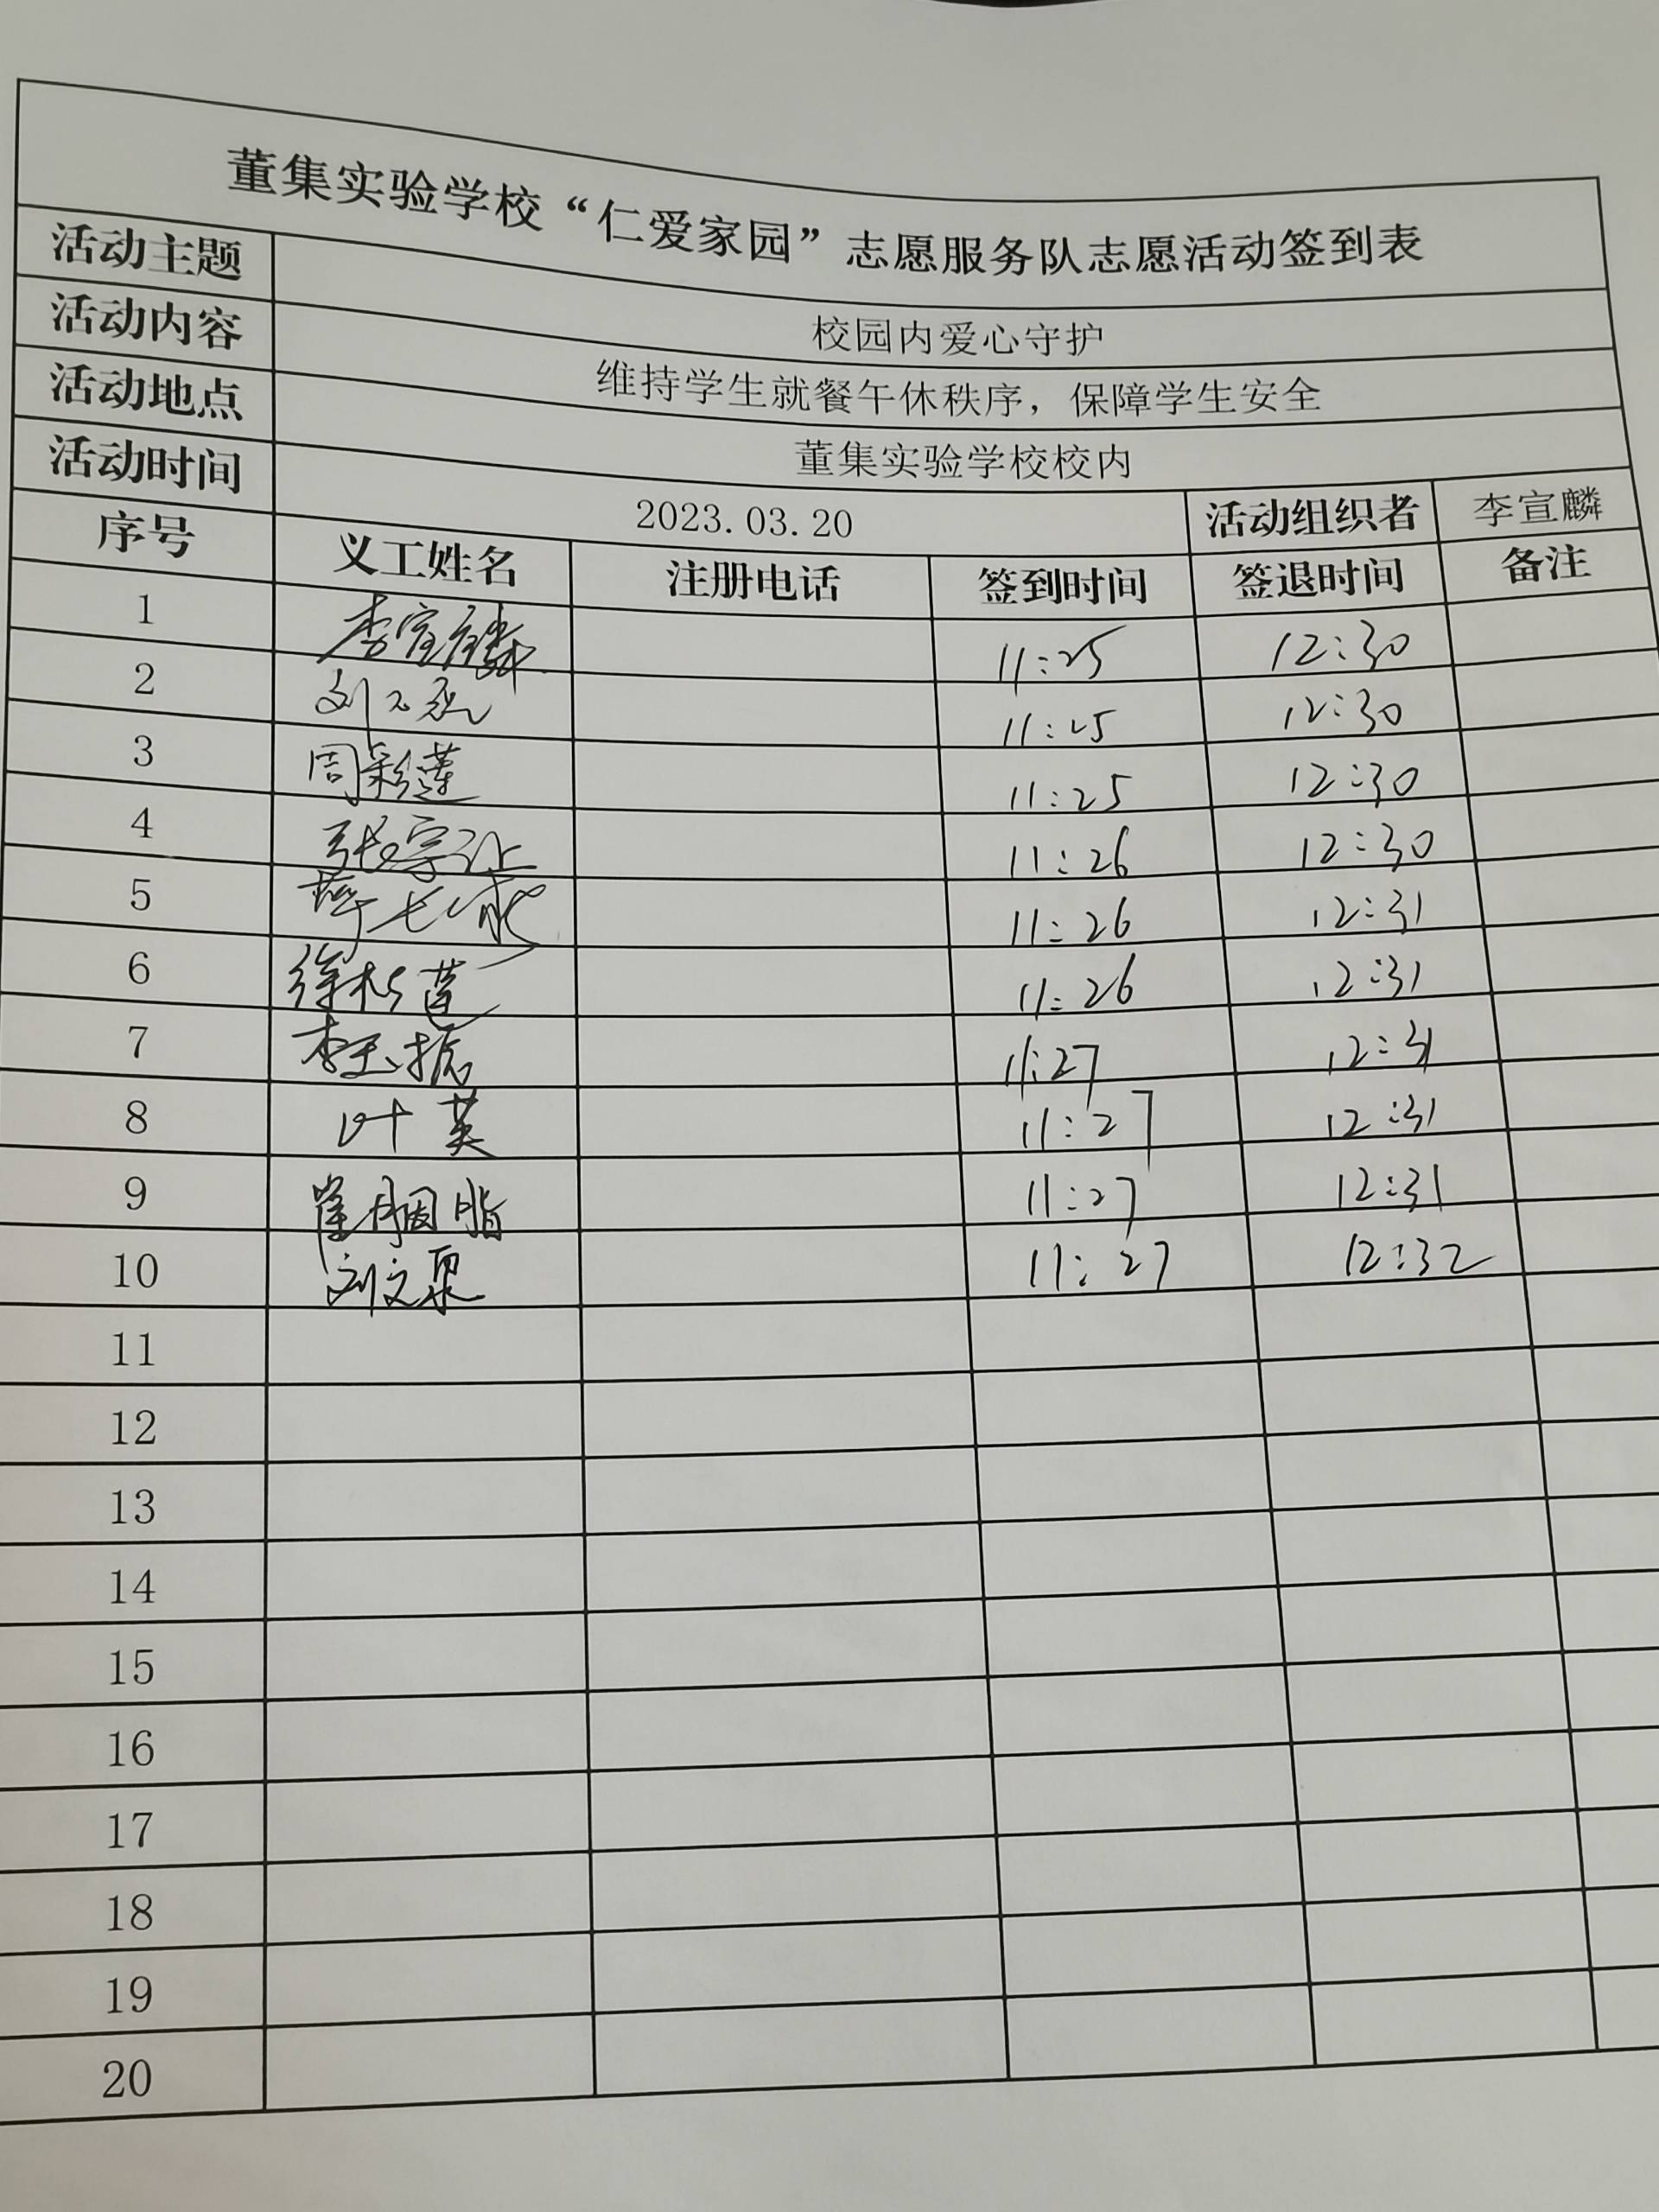 董集实验学校“仁爱家园”志愿服务队志愿活动签到表
活动主题 校园内爱心守护
活动内容 维持学生就餐午休秩序，保障学生安全
活动地点 董集实验学校校内
活动时间 2023.03.20 活动组织者 李宣麟
序号 义工姓名 注册电话 签到时间 签退时间 备注
1 李宣麟 11:25 12:30
2 刘 11:25 12:30
3 周彩莲 11:25 12:30
4 张宗让 11:26 12:30
5 11:26 12:31
6 徐 莲 11:26 12:31
7 李玉振 11:27 12:31
8 叶英 11:27 12:31
9 崔胭脂 11:27 12:31
10 刘文泉 11:27 12:32
11
12
13
14
15
16
17
18
19
20